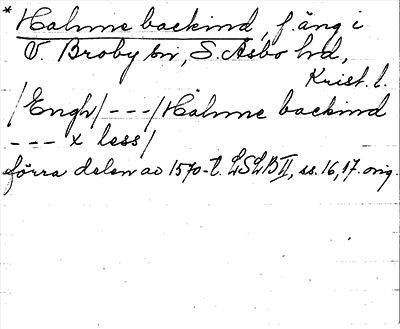 * Halmne backind, f. äng i
V. Broby sn, S. Åsbo hd,
Krist. l.
/Engh/ --- /Halmne backind
--- x less/
förra delen av 1570-t. LSLB II, ss. 16, 17. orig.